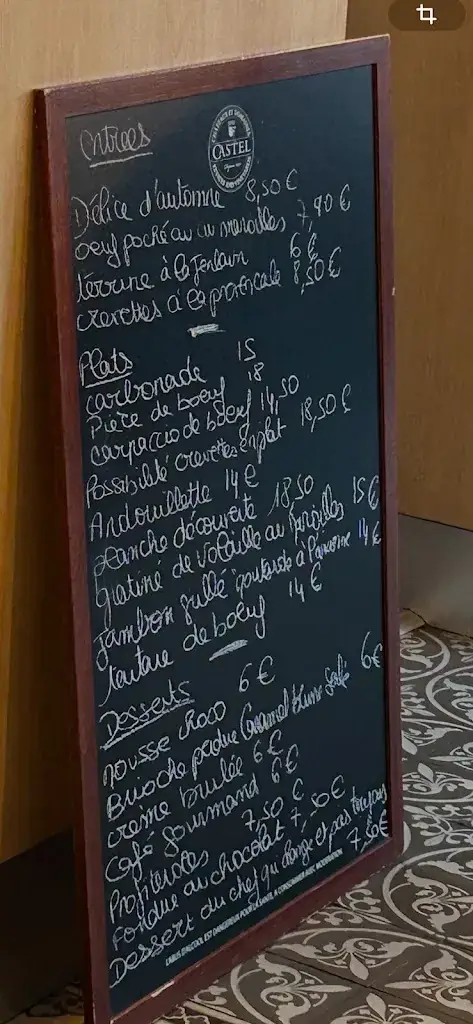 entrées
CASTEL
Délice d'automne 8,50 €
oeuf poché au maroilles 7,90 €
terrine à la Jenlain 6 €
crevettes à la provençale 8,50 €
Plats
carbonade 15
Pièce de boeuf 18
carpaccio de boeuf 14,50
Possibilité crevettes en plat 18,50 €
Andouillette 14 €
planche découverte 18,50
gratiné de volaille au maroilles 15 €
jambon grillé moutarde à l'ancienne 14 €
tartare de boeuf 14 €
Desserts
mousse choco 6 €
Brioche perdue Caramel beurre salé 6 €
crème brulée 6 €
Café gourmand 6 €
Profiteroles 7,50 €
Fondue au chocolat 7,50 €
Dessert du chef qui change et pas toujours 7,50 €
L'ABUS D'ALCOOL EST DANGEREUX POUR LA SANTÉ, À CONSOMMER AVEC MODÉRATION